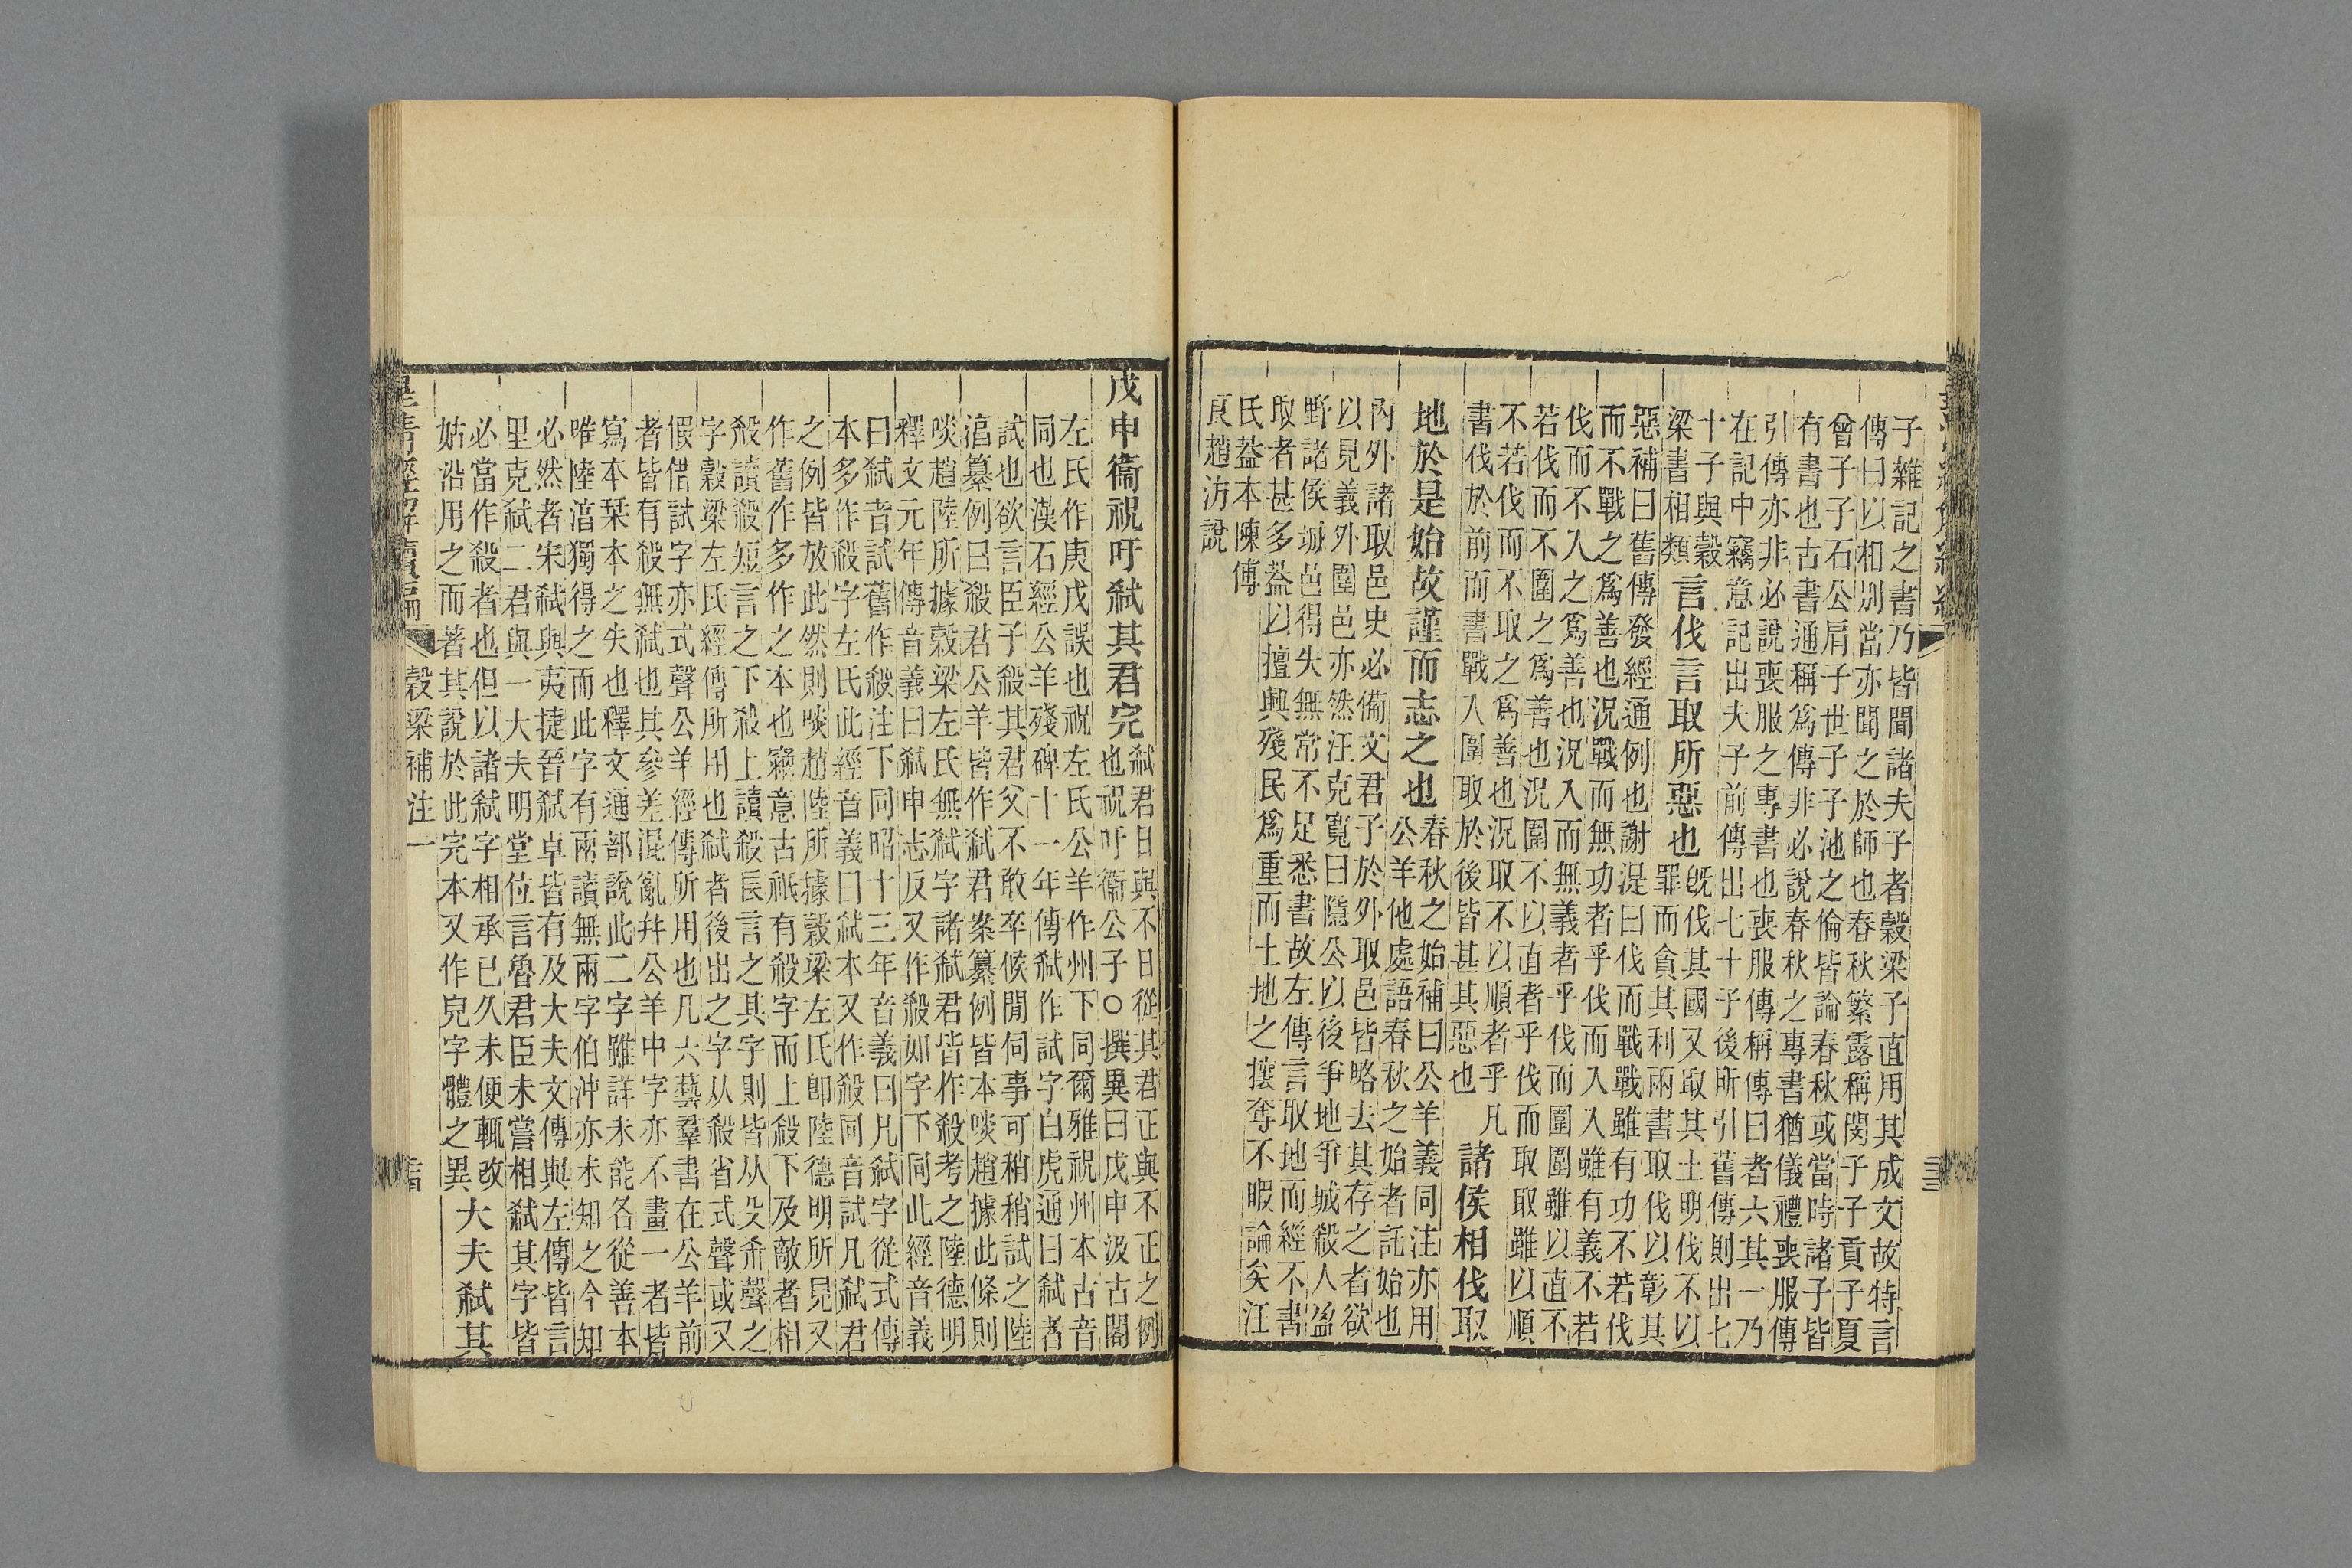 子雜記之書乃皆聞諸夫子者穀梁子直用其成文故特言
傳曰以相別當亦聞之於師也春秋繁露稱閔子子貢子夏
曾子子石公肩子世子子池之倫皆論春秋或當時諸子皆
有書也古書通稱爲傳非必說春秋之專書猶儀禮喪服傳
引傳亦非必說喪服之專書也喪服傳稱傳曰者六其一乃
在記中竊意記出夫子前傳出七十子後所引舊傳則出七
十子與穀
梁書相類
言伐言取所惡也
既伐其國又取其土明伐不以
罪而貪其利兩書取伐以彰其
惡補曰舊傳發經通例也謝湜曰伐而戰戰雖有功不若伐
而不戰之爲善也況戰而無功者乎伐而入入雖有義不若
伐而不入之爲善也況入而無義者乎伐而圍圍雖以直不
若伐而不圍之爲善也況圍不以直者乎伐而取取雖以順
不若伐而不取之爲善也況取不以順者乎凡
書伐於前而書戰入圍取於後皆甚其惡也
諸侯相伐取
地於是始故謹而志之也
春秋之始補曰公羊義同注亦用
公羊他處語春秋之始者託始也
內外諸取邑史必備文君子於外取邑皆略去其存之者欲
以見義外圍邑亦然汪克寬曰隱公以後爭地爭城殺人盈
野諸侯城邑得失無常不足悉書故左傳言取地而經不書
取者甚多蓋以擅興殘民爲重而土地之攘奪不暇論矣汪
氏蓋本陳傅
良趙汸說
戊申衞祝吁弒其君完
弒君日與不日從其君正與不正之例
也祝吁衞公子○撰異曰戊申汲古閣
左氏作庚戌誤也祝左氏公羊作州下同爾雅祝州本古音
同也漢石經公羊殘碑十一年傳弒作試字白虎通曰弒者
試也欲言臣子殺其君父不敢卒候閒伺事可稍稍試之陸
淳纂例曰殺君公羊皆作弒君案纂例皆本啖趙據此條則
啖趙陸所據穀梁左氏無弒字諸弒君皆作殺考之陸德明
釋文元年傳音義曰弒申志反又作殺如字下同此經音義
曰弒音試舊作殺注下同昭十三年音義曰凡弒字從式傳
本多作殺字左氏此經音義曰弒本又作殺同音試凡弒君
之例皆放此然則啖趙陸所據穀梁左氏卽陸德明所見又
作舊作多作之本也竊意古祇有殺字而上殺下及敵者相
殺讀殺短言之下殺上讀殺長言之其字則皆从殳杀聲之
字穀梁左氏經傳所用也弒者後出之字从殺省式聲或又
假借試字亦式聲公羊經傳所用也凡六藝羣書在公羊前
者皆有殺無弒也其參差混亂幷公羊中字亦不畫一者皆
寫本栞本之失也釋文通部說此二字雖詳未能各從善本
唯陸淳獨得之而此字有兩讀無兩字伯沖亦未知之今知
必然者宋弒與夷捷晉弒卓皆有及大夫文傳與左傳皆言
里克弒二君與一大夫明堂位言魯君臣未嘗相弒其字皆
必當作殺者也但以諸弒字相承已久未便輒改
姑沿用之而著其說於此完本又作皃字體之異
大夫弒其
皇清經解續編 穀梁補注一